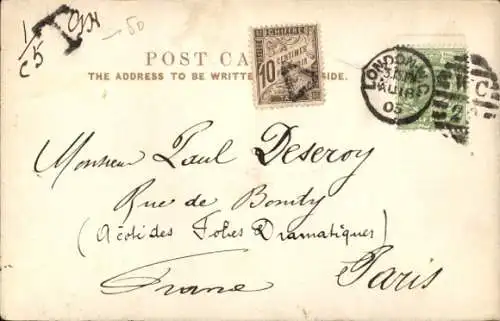 1/c5 T
50
POST CA
THE ADDRESS TO BE WRITTE SIDE.
CHIFFRE
10
CENTIMES
A PERCEVOIR
LONDON.W.C
AU 18
05
C
2
Monsieur Paul Deseroy
Rue de Bondy
(a côté des Folies Dramatiques)
France Paris